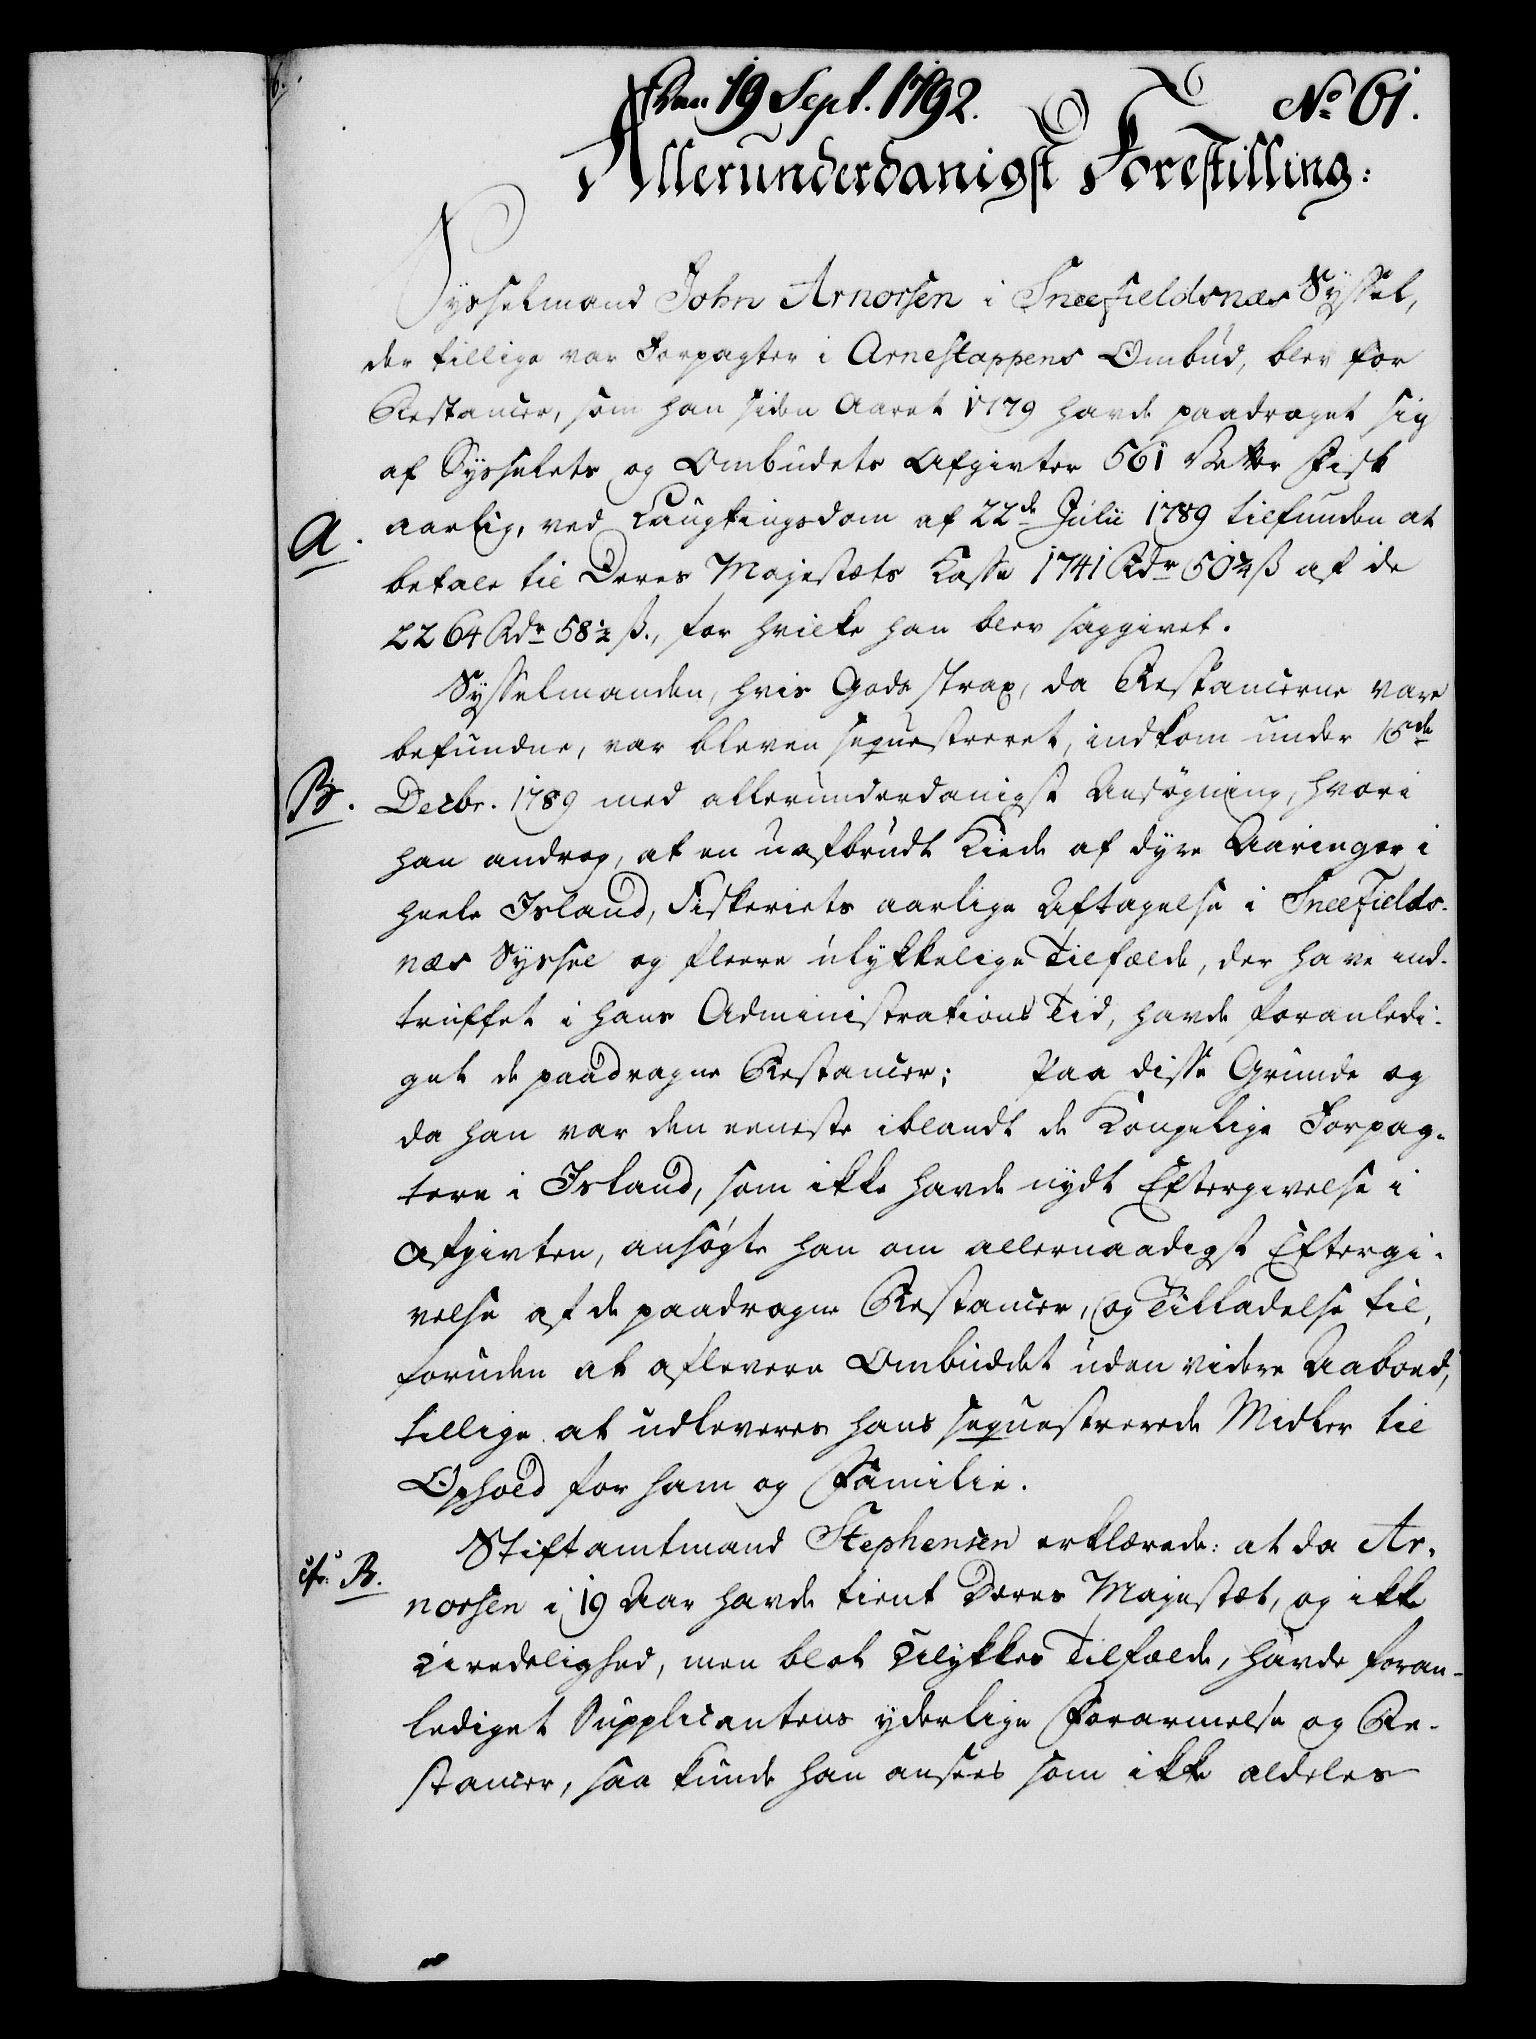 Den 19 Sept. 1792. No 61.
Allerunderdanigst Forestilling:
Sysselmand John Arnorsen i Sneefieldsnæs Syssel,
der tillige var Forpagter i Arnestappens Ombud, blev for
Restancer, som han siden Aaret 1779 havde paadraget sig
af Sysselets og Ombudets Afgivter 561 Vetter Fisk
A. aarlig, ved Laugtingsdom af 22de Julii 1789 tilfunden at
betale til Deres Majestæts Kasse 1741 Rdr 50¼ ß af de
2264 Rdr 58½ ß., for hvilke han blev saggivet.
Sysselmanden, hvis Gods strax, da Restancerne vare
befundne, var bleven sequestreret, indkom under 15de
B. Decbr. 1789 med allerunderdanigst Ansøgning, hvori
han androg, at en uafbrudt Kiede af dyre Aaringer i
heele Island, Fiskeriets aarlige Aftagelse i Sneefields-
næs Syssel og fleere ulykkelige Tilfælde, der have ind-
truffet i hans Administrations Tid, havde foranledi-
get de paadragne Restancer; Paa disse Grunde og
da han var den eeneste iblandt de Kongelige Forpag-
tere i Island, som ikke havde nydt Eftergivelse i
Afgivten, ansøgte han om allernaadigst Eftergi-
velse af de paadragne Restancer, og Tilladelse til,
foruden at aflevere Ombuddet uden videre Aaboed,
tillige at udleveres hans sequestrerede Midler til
Ophold for ham og Familie.
Stiftamtmand Stephensen erklærede: at da Ar-
cfr. B. norsen i 19 Aar havde tient Deres Majestæt, og ikke
Uredelighed, men blot Ulykkes Tilfælde, havde foran-
lediget Supplicantens yderlige Forarmelse og Re-
stancer, saa kunde han ansees som ikke aldeles